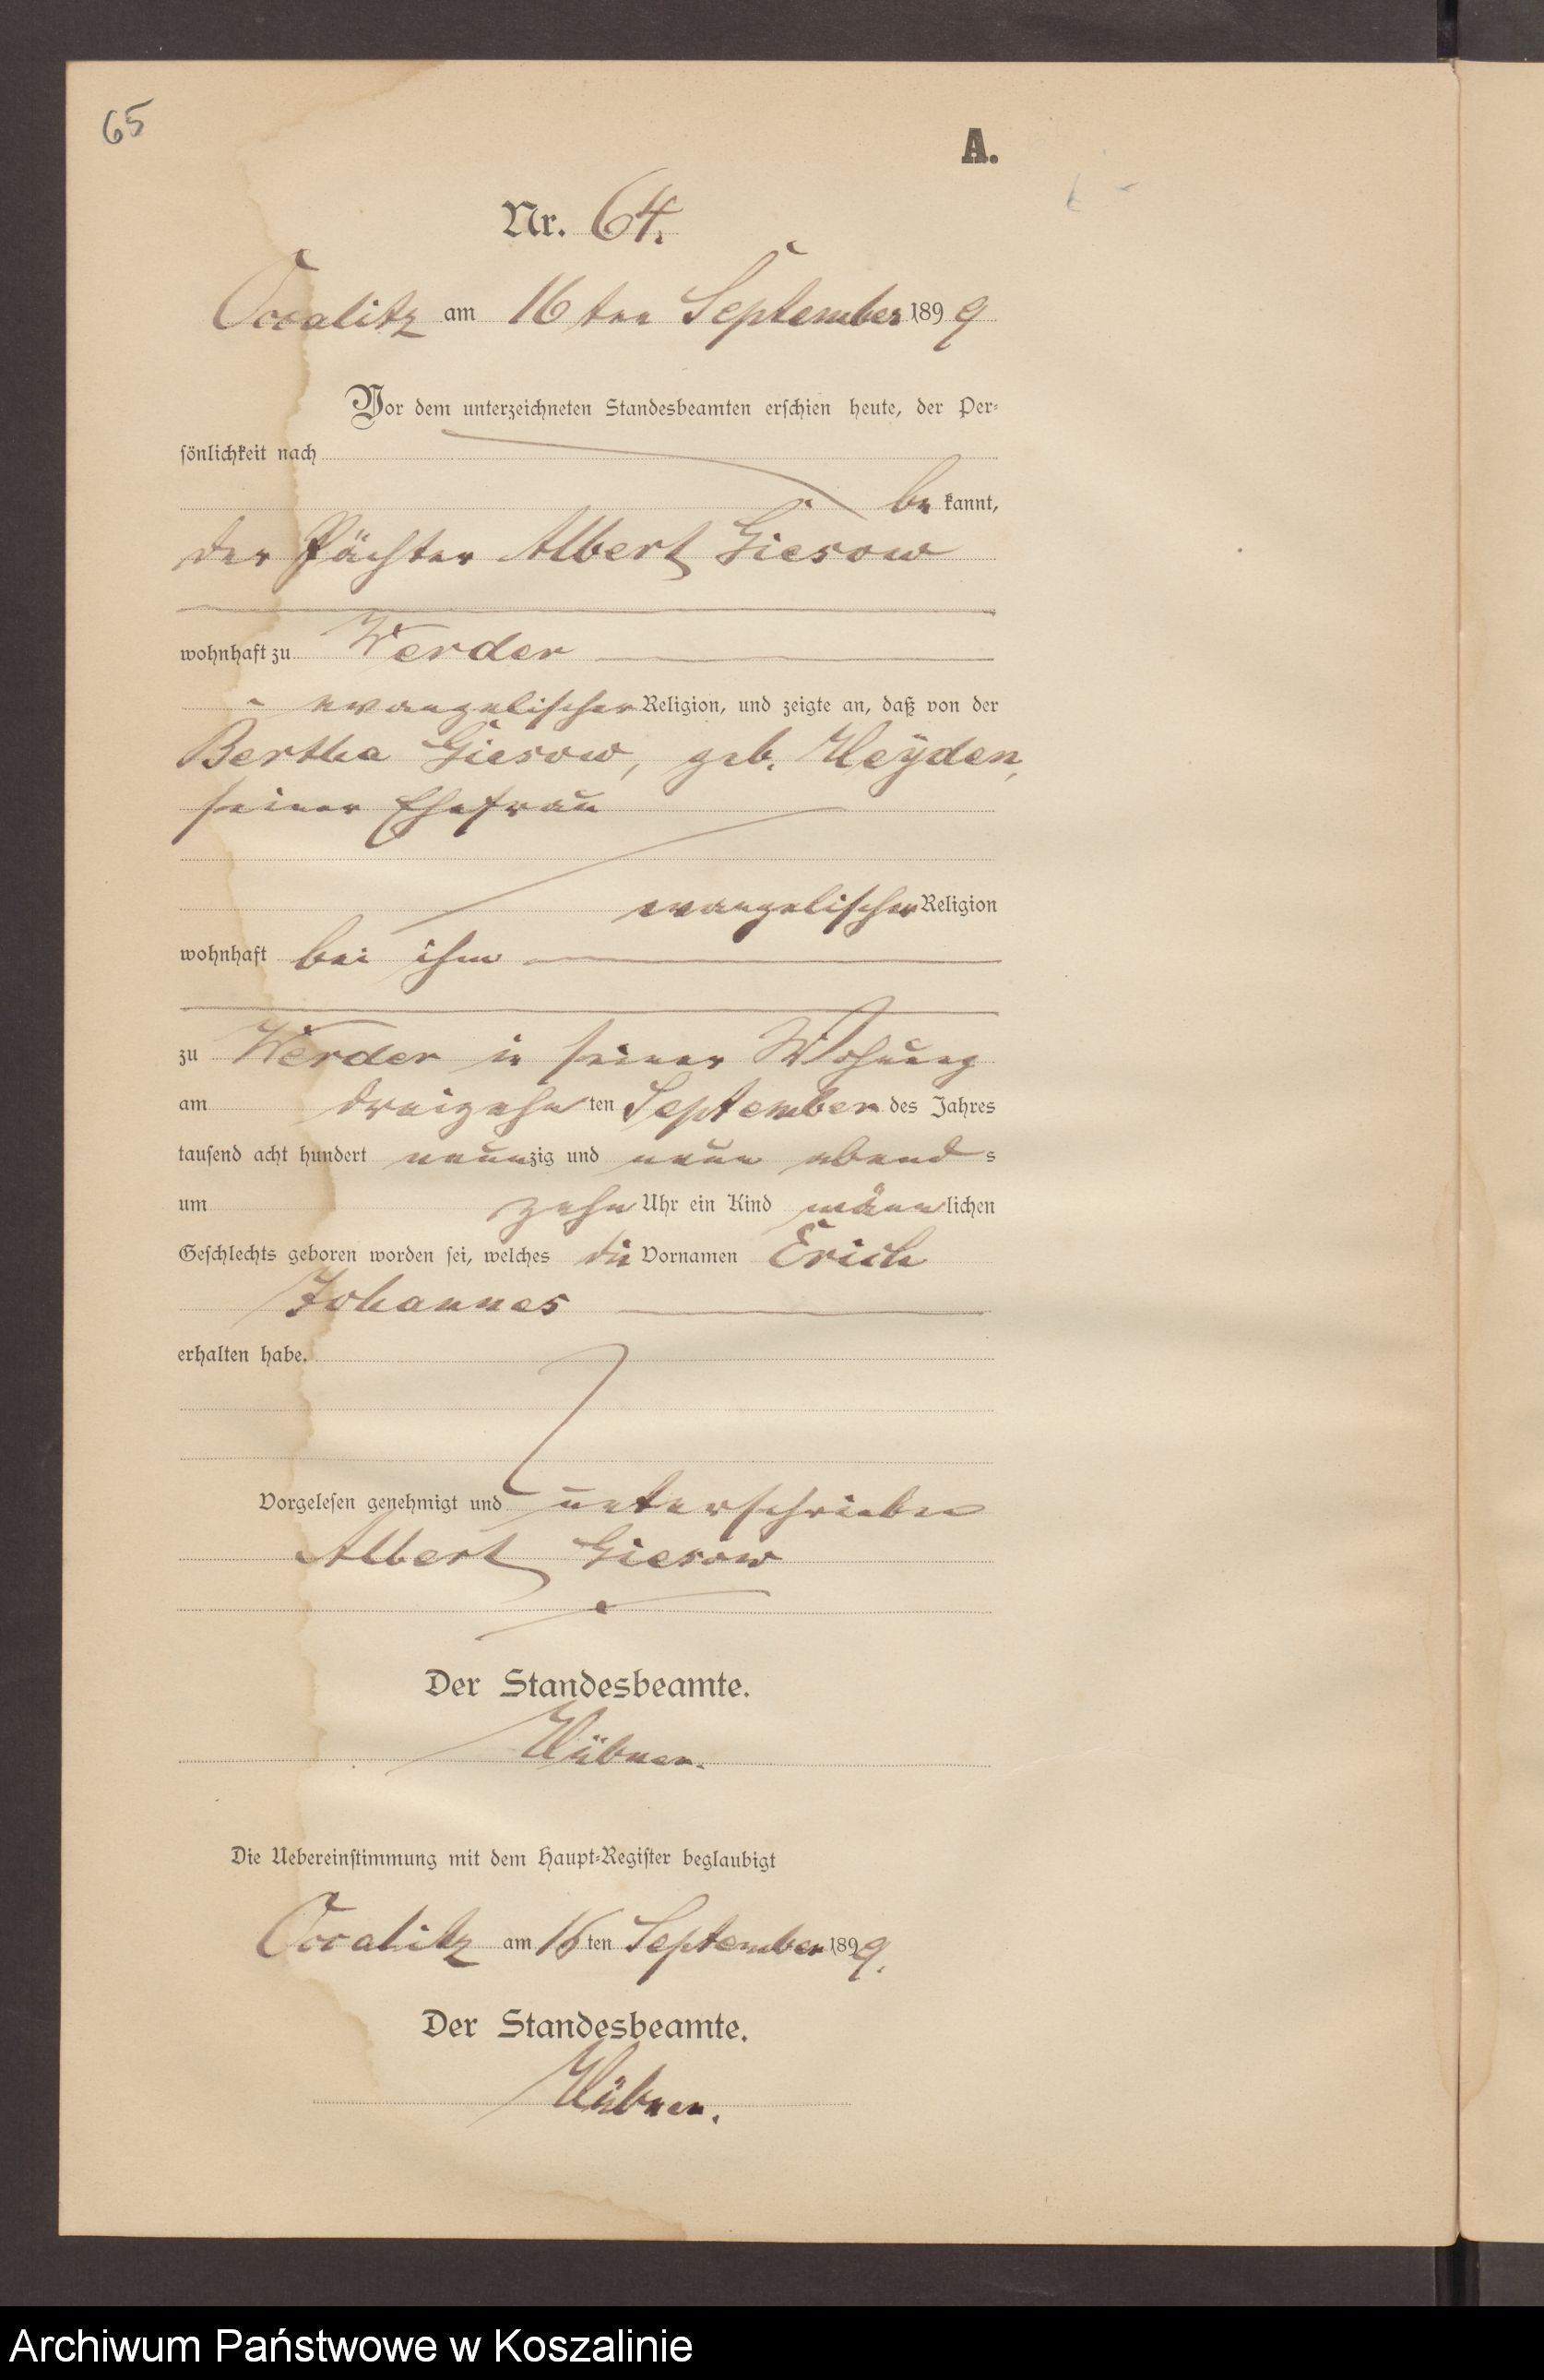 65
A.
Nr. 64.
Occalitz am 16ten September 1899
Vor dem unterzeichneten Standesbeamten erschien heute, der Per-
sönlichkeit nach
be kannt,
der Pächter Albert Giesow
wohnhaft zu Werder
evangelischer Religion, und zeigte an, daß von der
Bertha Giesow, geb. Heyden,
seiner Ehefrau
evangelischer Religion
wohnhaft bei ihm
zu Werder in seiner Wohnung
am dreizehn ten September des Jahres
tausend acht hundert neunzig und neun abend s
um zehn Uhr ein Kind männlichen
Geschlechts geboren worden sei, welches die Vornamen Erich
Johannes
erhalten habe.
Vorgelesen genehmigt und unterschrieben
Albert Giesow
Der Standesbeamte.
Hübner.
Die Uebereinstimmung mit dem Haupt-Register beglaubigt
Occalitz am 16 ten September 1899.
Der Standesbeamte.
Hübner.
Archiwum Państwowe w Koszalinie